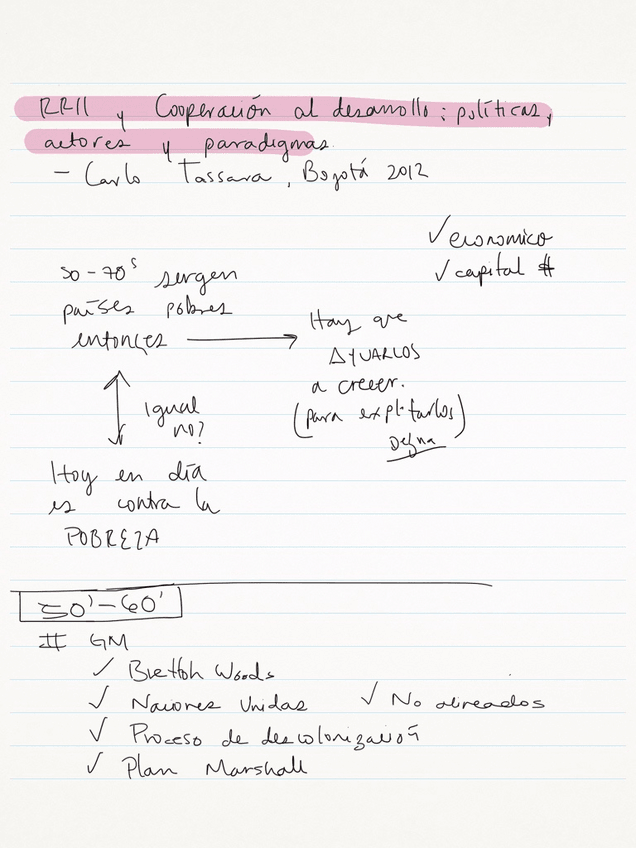 RRII y Cooperación al desarrollo: políticas,
actores y paradigmas.
- Carlo Tassara, Bogotá 2012
✓ economico
✓ capital $
50-70s surgen
países pobres
entonces →
Hay que
AYUARLOS
a crecer.
(para explotarlos)
igual
no?
Hoy en día
es contra la
POBREZA
50'-60'
II GM
✓ Bretton Woods
✓ Naciones Unidas ✓ No alineados
✓ Proceso de descolonización
✓ Plan Marshall